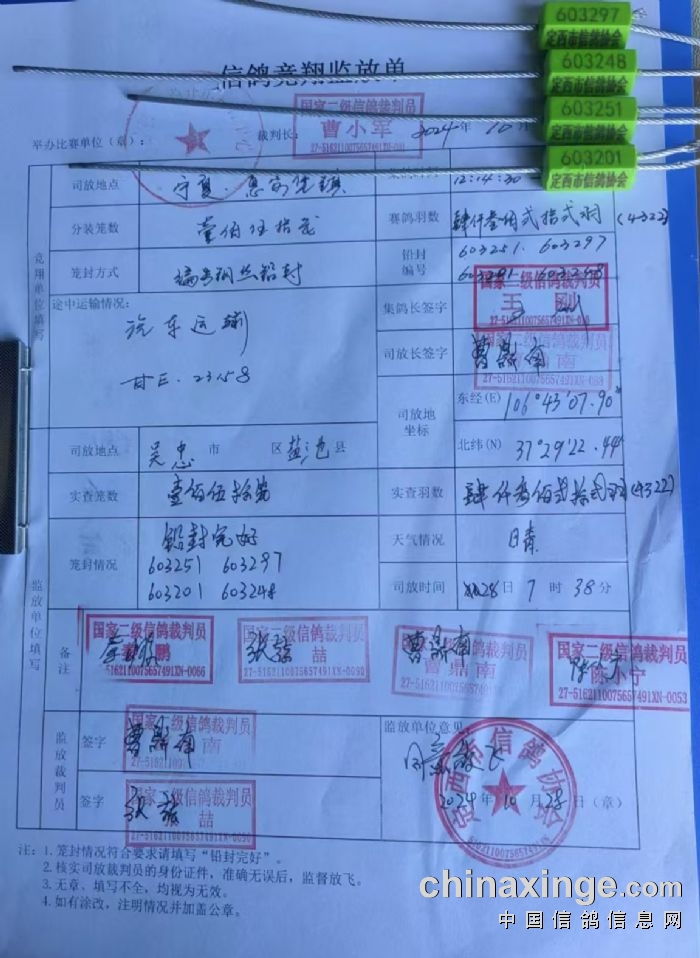 603297
定西市信鸽协会
603248
定西市信鸽协会
603251
定西市信鸽协会
603201
定西市信鸽协会
信鸽竞翔监放单
国家二级信鸽裁判员
曹小军
举办比赛单位（章）：
裁判长：
2024年10
司放地点
宁夏·惠安堡镇
12:14:30
分装笼数
壹佰伍拾
赛鸽羽数
肆仟叁佰弍拾弍羽(4322)
竞翔单位填写
笼封方式
编号钢丝铅封
铅封编号
603251. 603297
603201 603248
途中运输情况：
汽车运输
甘E.23158
集鸽长签字
国家二级信鸽裁判员
王刚
司放长签字
曹鼎南
司放地坐标
东经(E)
106°43′07.90″
北纬(N)
37°29′22.44″
司放地点
吴忠市 区盐池县
实查笼数
壹佰伍拾
实查羽数
肆仟叁佰弍拾弍羽(4322)
监放单位填写
笼封情况
铅封完好
603251 603297
603201 603248
天气情况
晴
司放时间
28日7时38分
备注
国家二级信鸽裁判员
鹏
27-5162110075657491XN-0066
国家二级信鸽裁判员
喆
国家二级信鸽裁判员
曹鼎南
国家二级信鸽裁判员
陈小宁
27-5162110075657491XN-0053
监放裁判员
签字
曹鼎南
签字
国家二级信鸽裁判员
喆
监放单位意见
同意放飞
定西市信鸽协会
2024年10月28日（章）
注：1.笼封情况符合要求请填写“铅封完好”。
2.核实司放裁判员的身份证件，准确无误后，监督放飞。
3.无章、填写不全，均视为无效。
4.如有涂改，注明情况并加盖公章。
chinaxinge.com
中国信鸽信息网